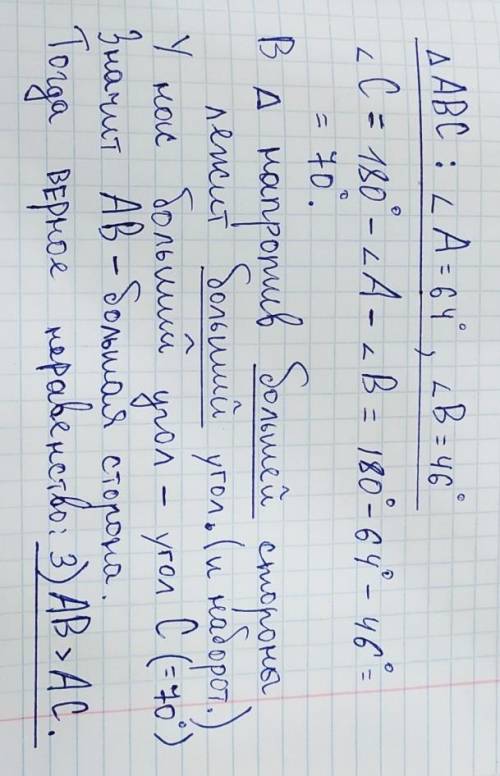 Δ ABC : ∠ A = 64°, ∠ B = 46°
∠ C = 180° - ∠A - ∠B = 180° - 64° - 46° =
= 70°.
В Δ напротив большей стороны
лежит больший угол. (и наборот.)
У нас больший угол - угол C (=70°)
Значит AB - большая сторона.
Тогда верное неравенство: 3) AB > AC.